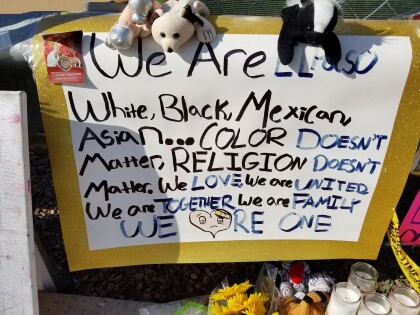 We Are El Paso
White, Black, Mexican,
Asian... COLOR DOESN'T
Matter, RELIGION DOESN'T
Matter, We LOVE, We are UNITED
We are TOGETHER We are FAMILY
WE RE ONE